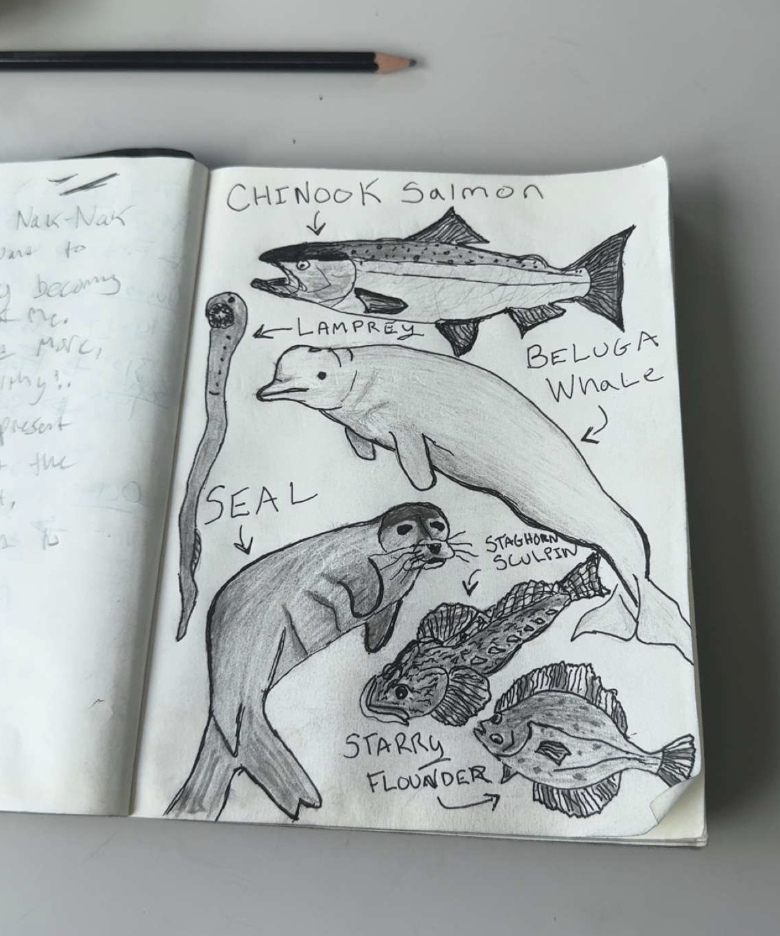 Nak-Nak
to
becoming
me.
more,
present
the
CHINOOK Salmon
LAMPREY
BELUGA
Whale
SEAL
STAGHORN
SCULPIN
STARRY
FLOUNDER